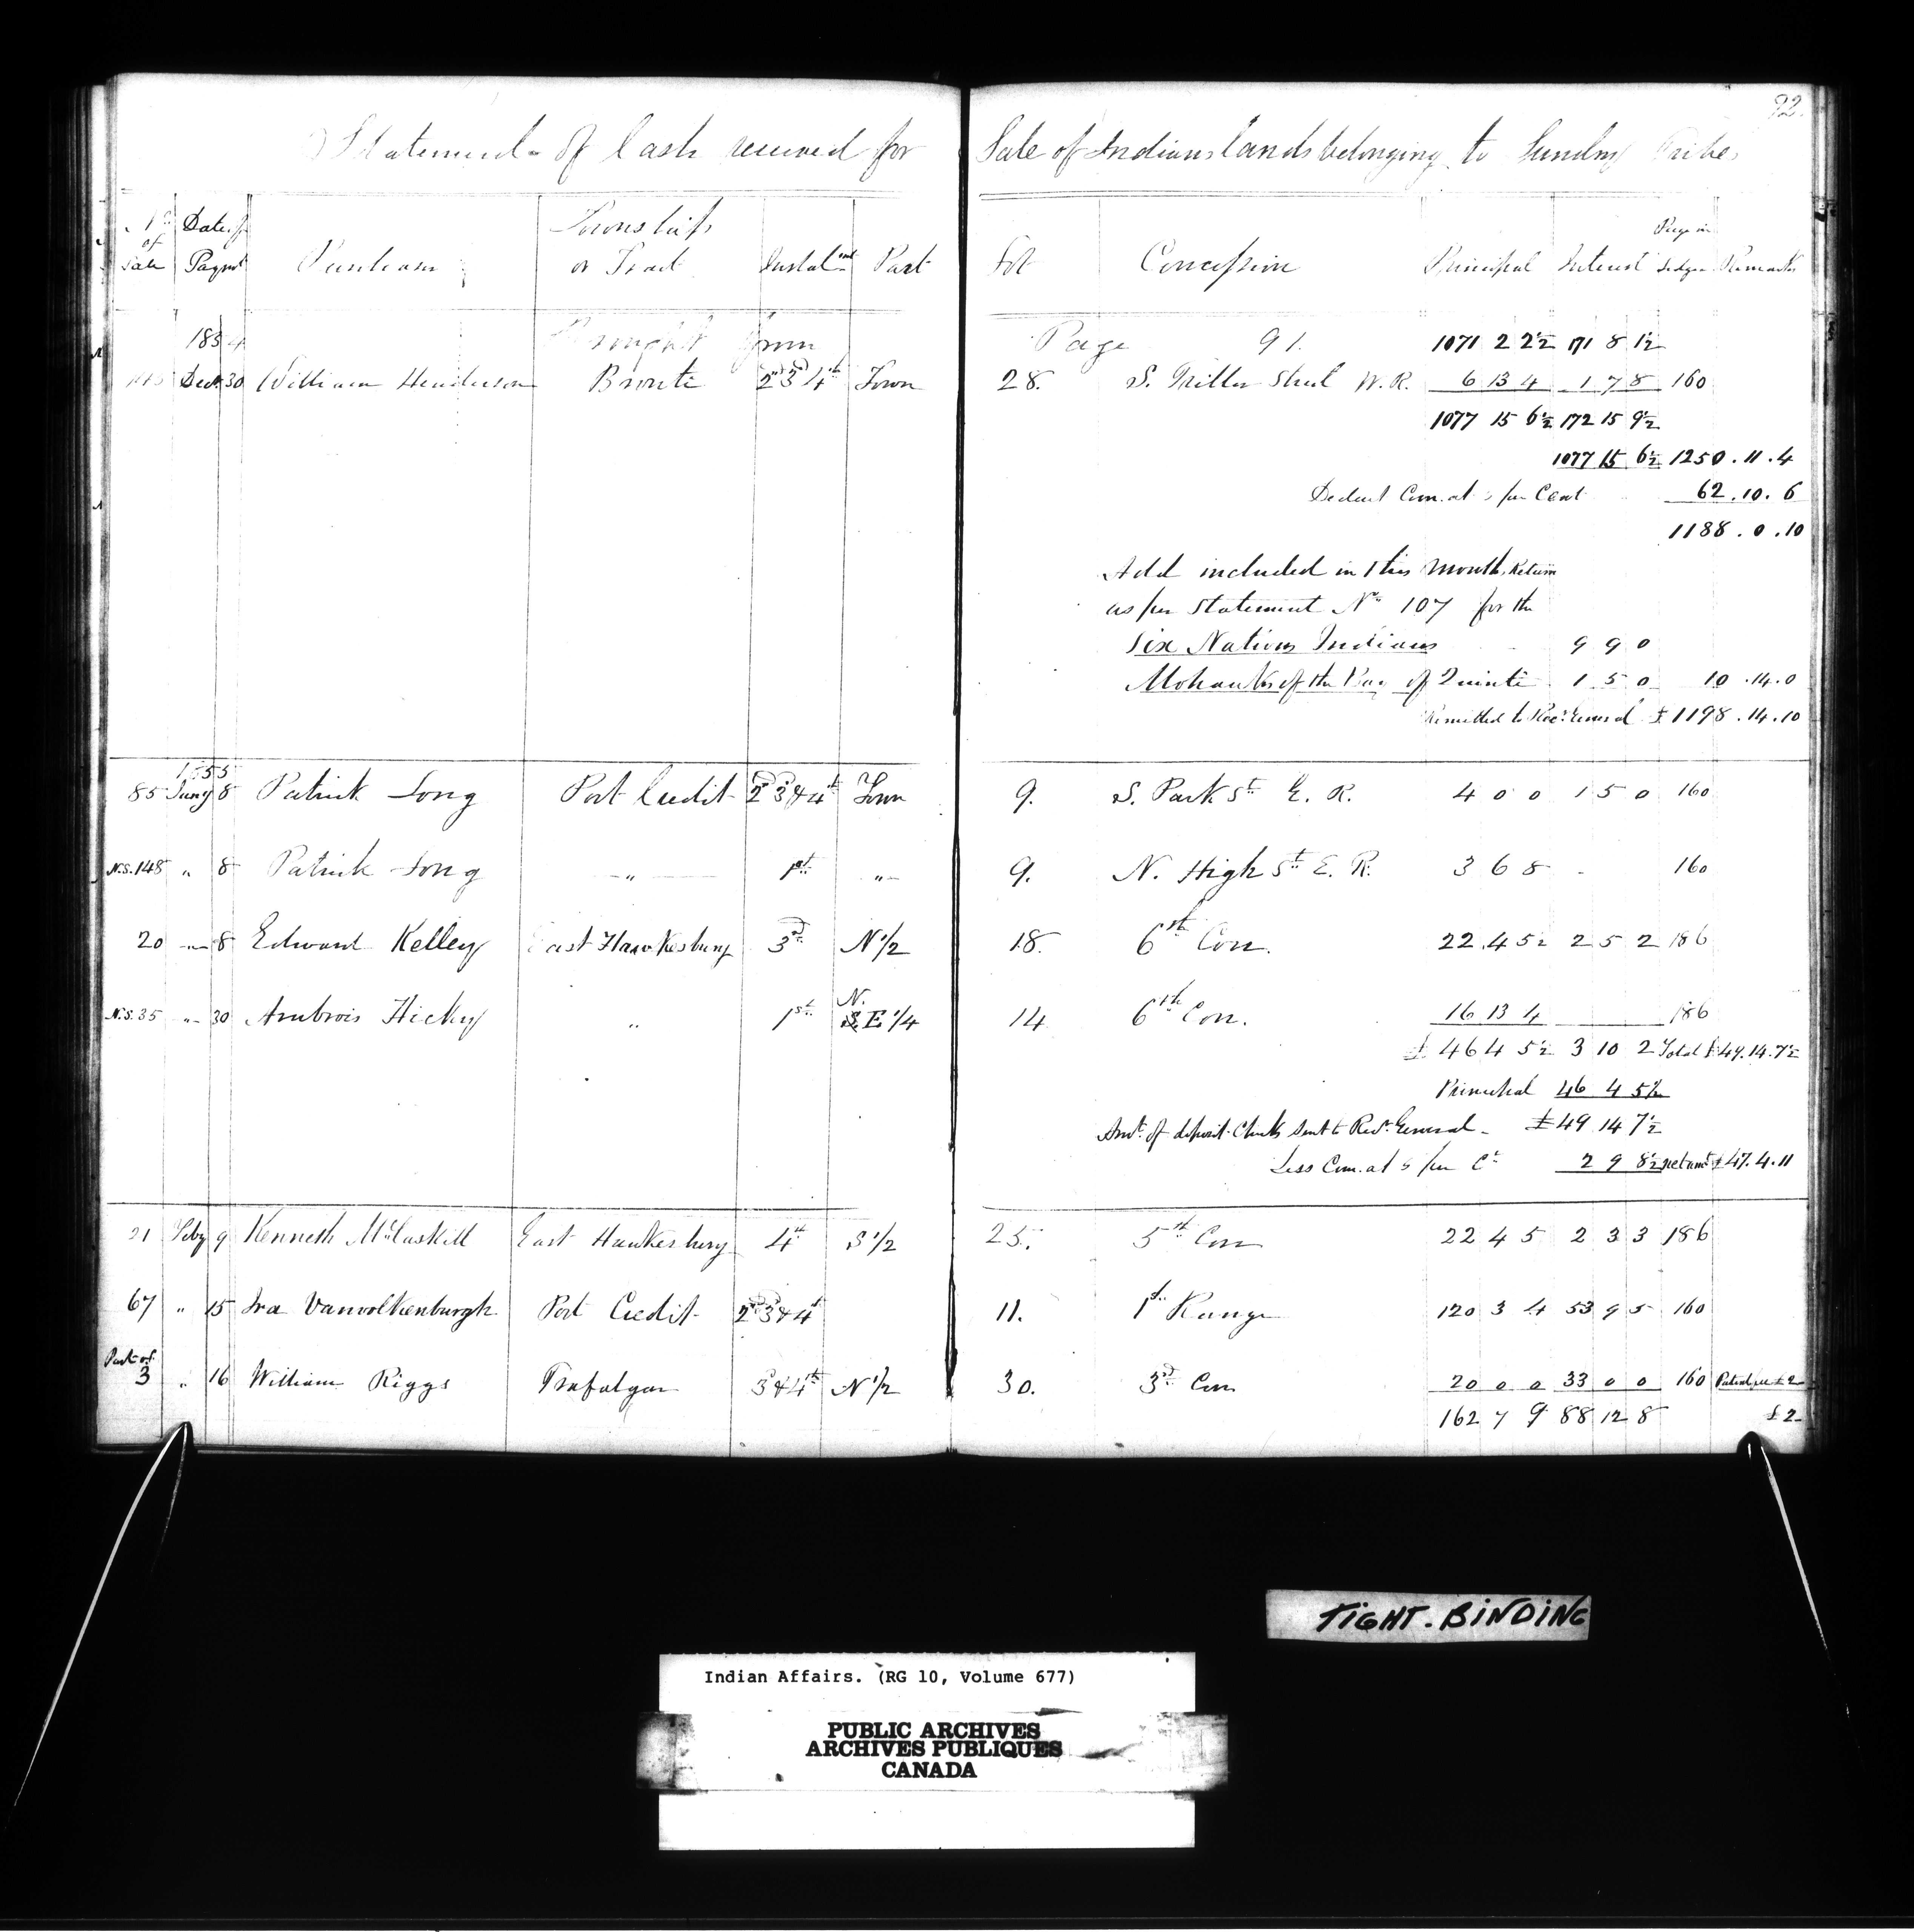 92.
Statement of Cash received for Sale of Indians lands belonging to Sundry Tribes
No of Sale Date of Paymt Purchaser Township or Tract Instalmnt Part Lot Concession Principal Interest Page in Ledger Remarks
1854 Brought from Page 91. 1071 2 2½ 171 8 1½
Decr 30 William Henderson Bronte 2nd 3d 4th Town 28. S. Triller Street W.R. 6 13 4 1 7 8 160
1077 15 6½ 172 15 9½
1077 15 6½ 1250.11.4
Deduct Com. at 5 per Cent 62.10.6
1188.0.10
Add included in this Months Return
as per Statement No 107 for the
Six Nations Indians 9 9 0
Mohawks of the Bay of Quinte 1 5 0 10.14.0
Remitted to Recr General £1198.14.10
1855
85 Jany 8 Patrick Long Port Credit 2d 3d & 4th Town 9. S. Park St E. R. 4 0 0 1 5 0 160
N.S. 148 " 8 Patrick Long " 1st " 9. N. High St E. R. 3 6 8 - 160
20 " 8 Edward Kelley East Hawkesbury 3rd N 1/2 18. 6th Con. 22 4 5½ 2 5 2 186
N.S. 35 " 30 Ambrois Hicky " 1st N. S.E 1/4 14 6th Con. 16 13 4 186
£ 46 4 5½ 3 10 2 Total £49.14.7½
Principal 46 4 5½
Amt. of deposit Checks sent to Recr. General £49 14 7½
Less Com. at 5 per Ct 2 9 8½ net amt £47.4.11
21 Feby 9 Kenneth McCaskill East Hawkesbury 4th S 1/2 25. 5th Con 22 4 5 2 3 3 186
67 " 15 Ira Vanvolkenburgh Port Credit 2d 3d & 4th 11. 1st Range 120 3 4 53 9 5 160
Part of 3 " 16 William Riggs Trafalgar 3d & 4th N 1/2 30. 3rd Con 20 0 0 33 0 0 160 Patent fee £2
162 7 9 88 12 8 £2
TIGHT. BINDING
Indian Affairs. (RG 10, Volume 677)
PUBLIC ARCHIVES
ARCHIVES PUBLIQUES
CANADA